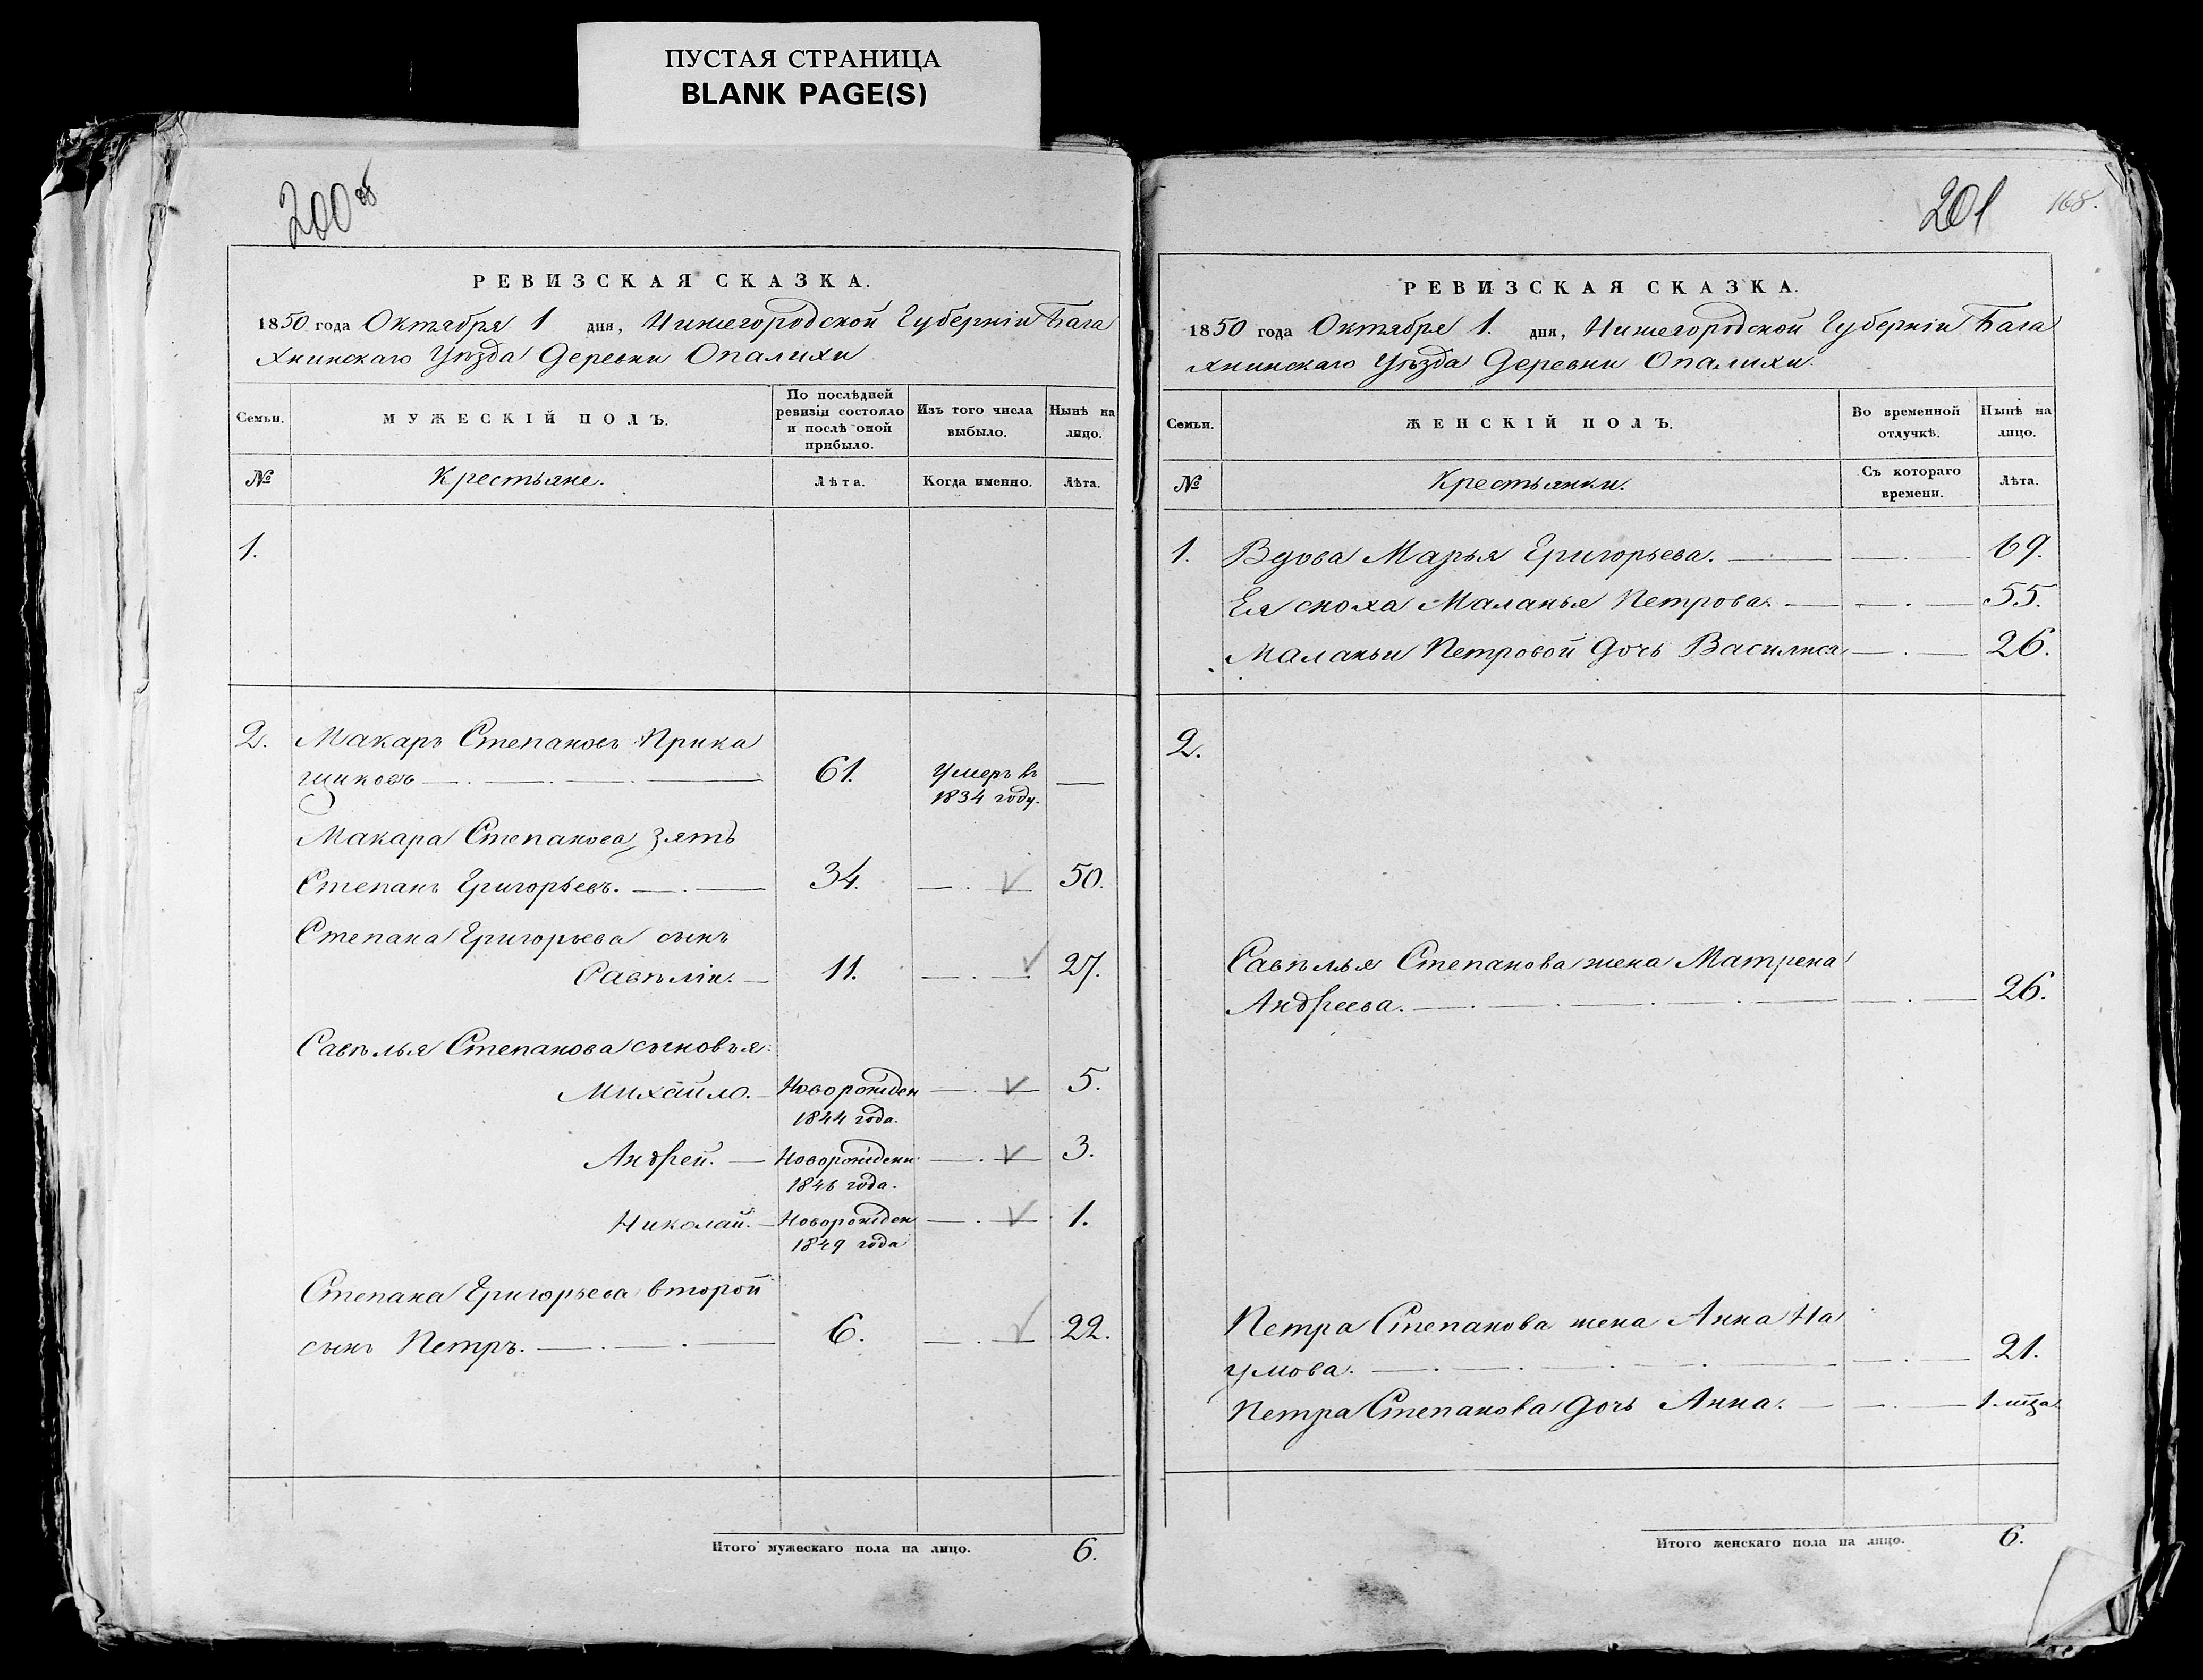 ПУСТАЯ СТРАНИЦА
BLANK PAGE(S)
200 об
РЕВИЗСКАЯ СКАЗКА.
1850 года Октября 1 дня, Нижегородской Губерніи Бала
хнинскаго Уѣзда Деревни Опалихи
Семьи.
МУЖЕСКІЙ ПОЛЪ.
По послѣдней
ревизіи состояло
и послѣ оной
прибыло.
Изъ того числа
выбыло.
Нынѣ на
лицо.
№
Крестьяне.
Лѣта.
Когда именно.
Лѣта.
1.
2. Макаръ Степановъ Прика
щиковъ 61. Умеръ въ —
1834 году.
Макара Степанова зять
Степанъ Григорьевъ. — 34. — 50.
Степана Григорьева сынъ
Савѣлій. — 11. — 27.
Савѣлья Степанова сыновья:
Михайло. — Новорожден — 5.
1844 года.
Андрей. — Новорожденн — 3.
1846 года.
Николай. — Новорожден — 1.
1849 года
Степана Григорьева второй
сынъ Петръ. — 6. — 22.
Итого мужескаго пола на лицо. 6.
201 168.
РЕВИЗСКАЯ СКАЗКА.
1850 года Октября 1. дня, Нижегородской Губерніи Бала
хнинскаго Уѣзда Деревни Опалихи.
Семьи.
ЖЕНСКІЙ ПОЛЪ.
Во временной
отлучкѣ.
Нынѣ на
лицо.
№
Крестьянки.
Съ котораго
времени.
Лѣта.
1. Вдова Марья Григорьева. — 69.
Ея сноха Маланья Петрова. — 55.
Маланьи Петровой дочь Василиса — 26.
2.
Савѣлья Степанова жена Матрена
Андреева. — 26.
Петра Степанова жена Анна На
умова. — 21.
Петра Степанова дочь Анна. — 1. мца.
Итого женскаго пола на лицо. 6.